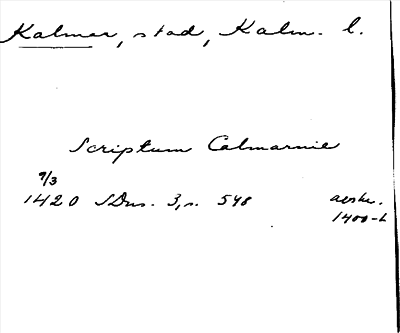 Kalmar, stad, Kalm. l.
Scriptum Calmarnie
9/3
1420 SDns. 3, s. 548 avskr.
1400-t